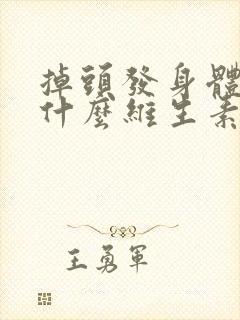 掉頭發身體
什麼維生素
王勇軍